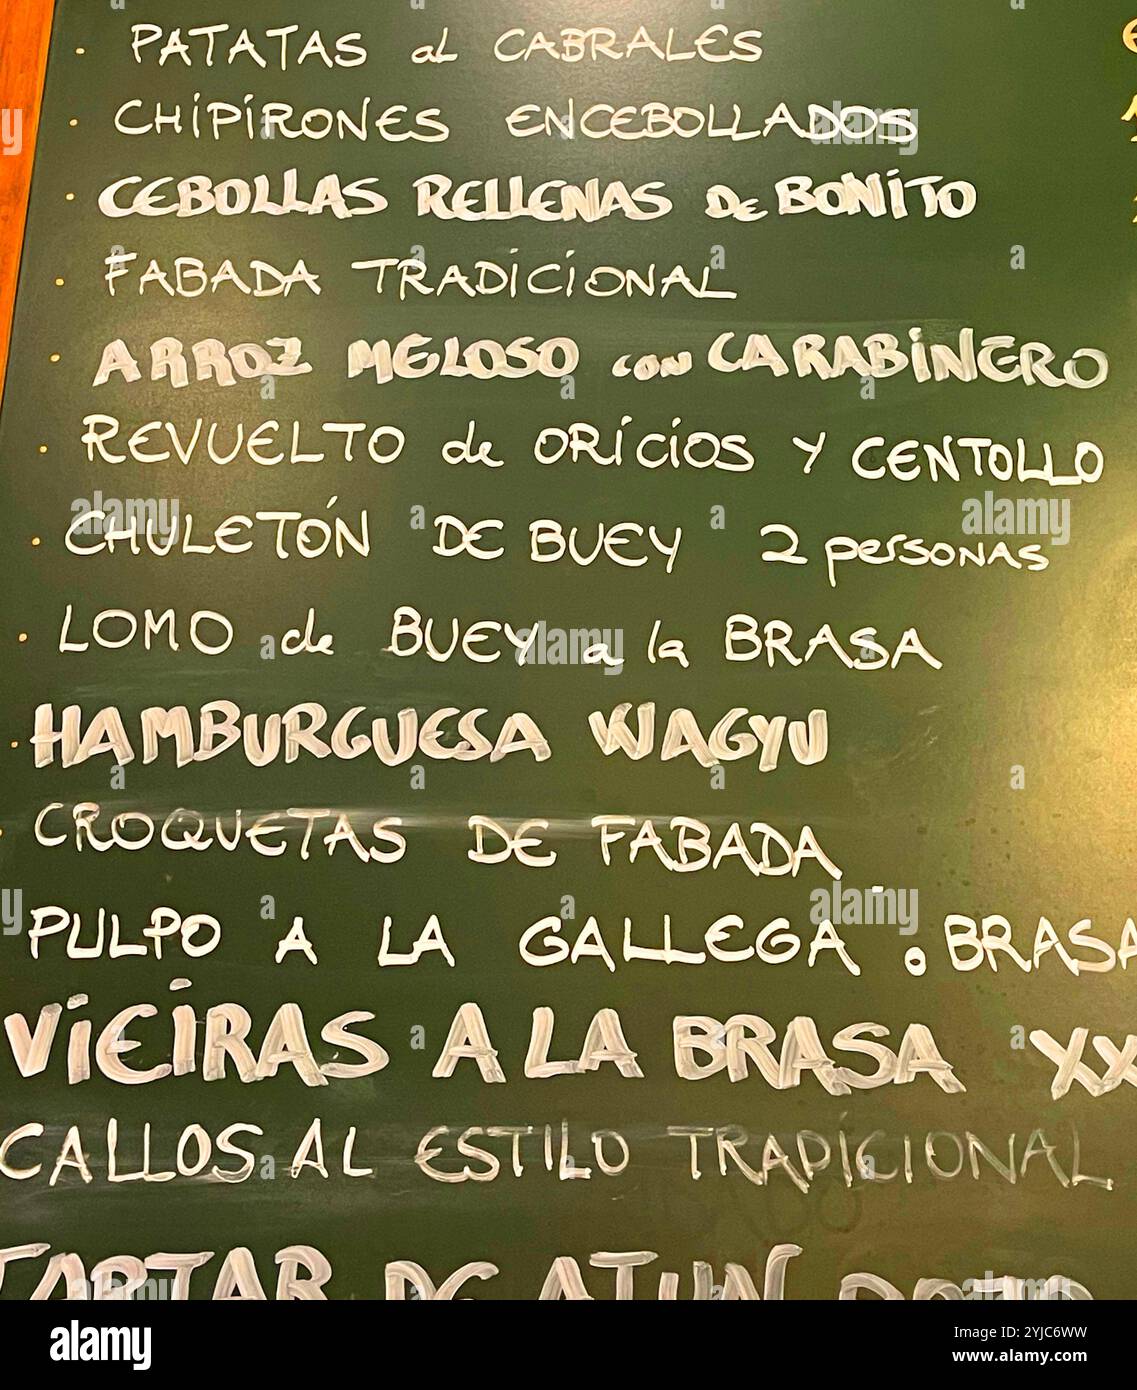 · PATATAS al CABRALES
· CHiPiRONES ENCEBOLLADOS
· CEBOLLAS RELLENAS DE BONiTO
· FABADA TRADiCiONAL
· ARROZ MELOSO con CARABiNERO
· REVUELTO de ORiCiOS Y CENTOLLO
· CHULETÓN DE BUEY 2 personas
· LOMO de BUEY a la BRASA
· HAMBURGUESA WAGYU
· CROQUETAS DE FABADA
PULPO A LA GALLEGA o BRASA
ViEiRAS A LA BRASA XX
CALLOS AL ESTILO TRADiCiONAL
TARTAR DE ATUN ROJO
alamy
Image ID: 2YJC6WW
www.alamy.com